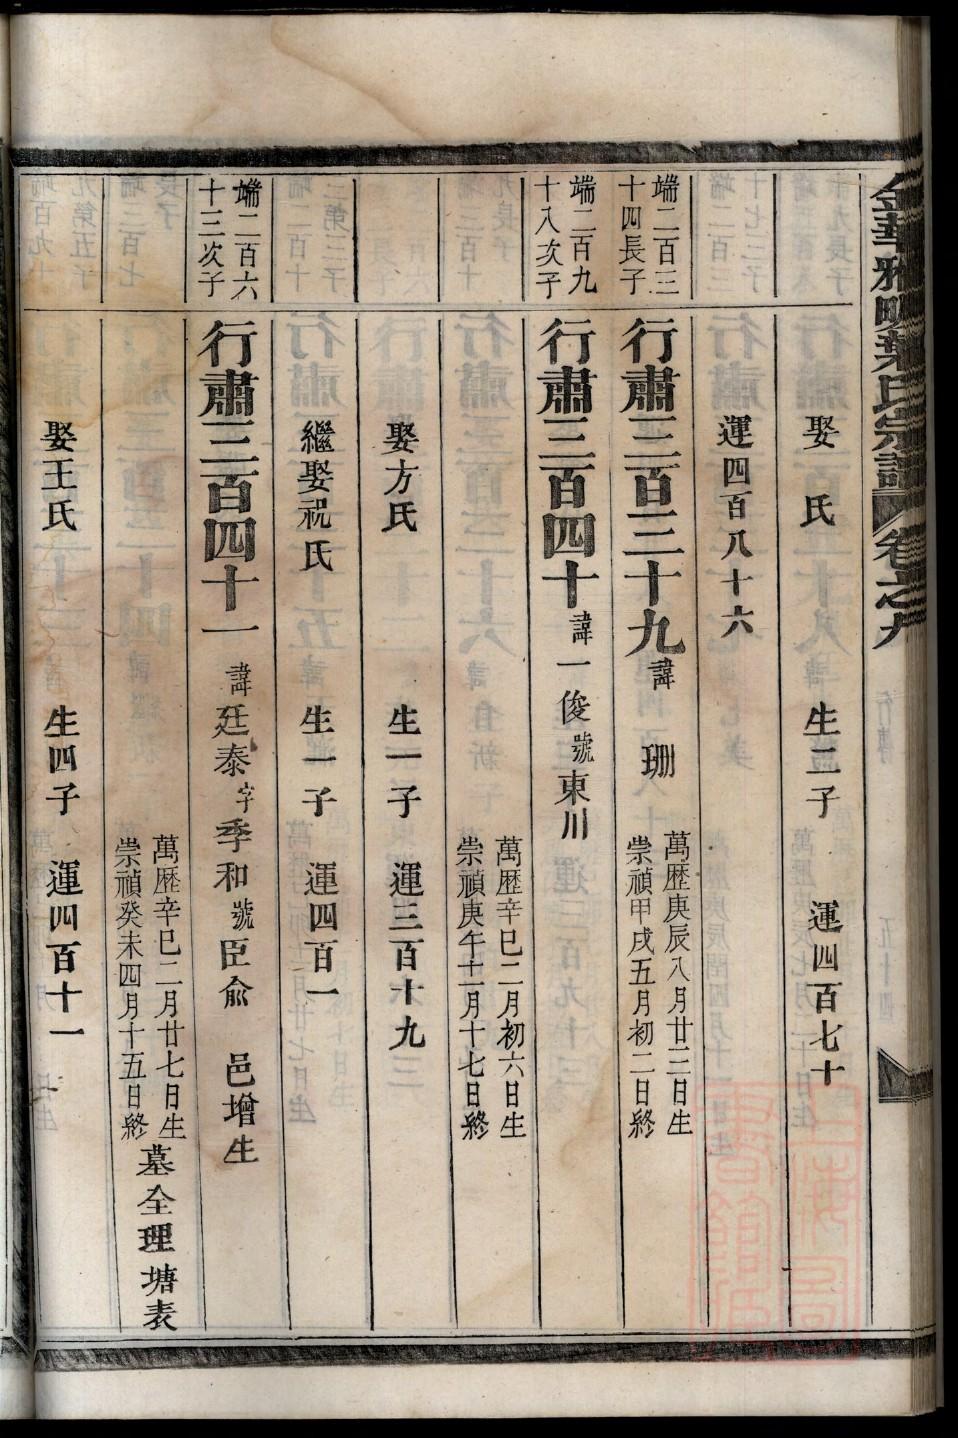 金華雅畈葉氏宗譜 卷之九
娶 氏 生二子 運四百七十
運四百八十六
端二百三十四長子
行肅三百三十九 諱 珊 萬歷庚辰八月廿三日生
崇禎甲戌五月初二日終
端二百九十八次子
行肅三百四十 諱一俊 號東川
萬歷辛巳二月初六日生
崇禎庚午十一月十七日終
娶方氏 生一子 運三百十九
繼娶祝氏 生一子 運四百一
端二百六十三次子
行肅三百四十一 諱廷泰 字季和 號臣俞 邑增生
萬歷辛巳二月廿七日生
崇禎癸未四月十五日終
墓全理塘表
娶王氏 生四子 運四百十一